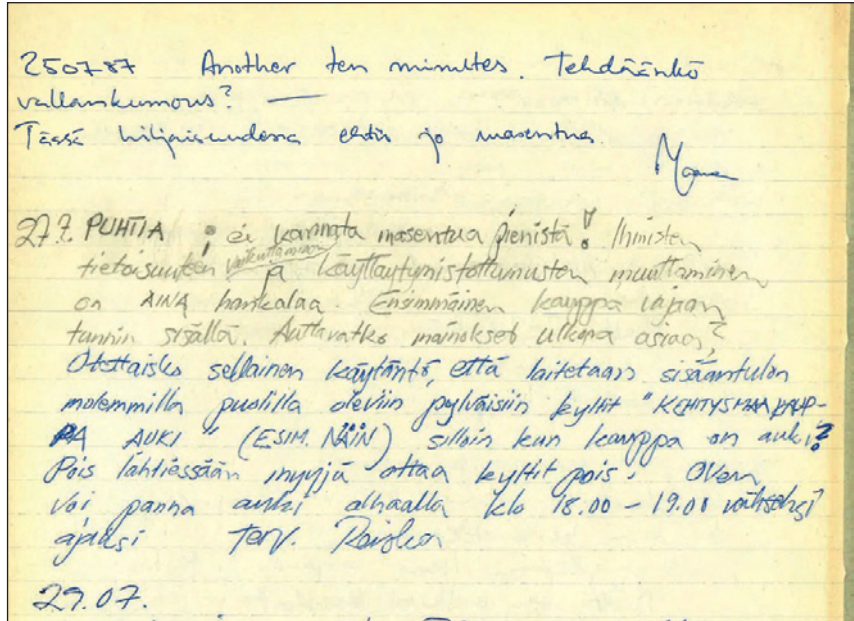 250787 Another ten minutes. Tehdäänkö
vallankumous? —
Tässä hiljaisuudessa ehtii jo masentua.
27.7. PUHTIA ; ei kannata masentua pienistä! Ihmisten
tietoisuuteen vaikuttaminen ja käyttäytymistottumusten muuttaminen
on AINA hankalaa. Ensimmäinen kauppa vajaan
tunnin sisällä. Auttavatko mainokset ulkona asiaan?
Otettaisko sellainen käytäntö, että laitetaan sisääntulon
molemmilla puolilla oleviin pylväisiin kyltit "KEHITYSMAAKAUP-
PA AUKI" (ESIM. NÄIN) silloin kun kauppa on auki?
Pois lähtiessään myyjä ottaa kyltit pois. Oven
voi panna auki alhaalla klo 18.00 - 19.00 väliseksi
ajaksi Terv.
29.07.